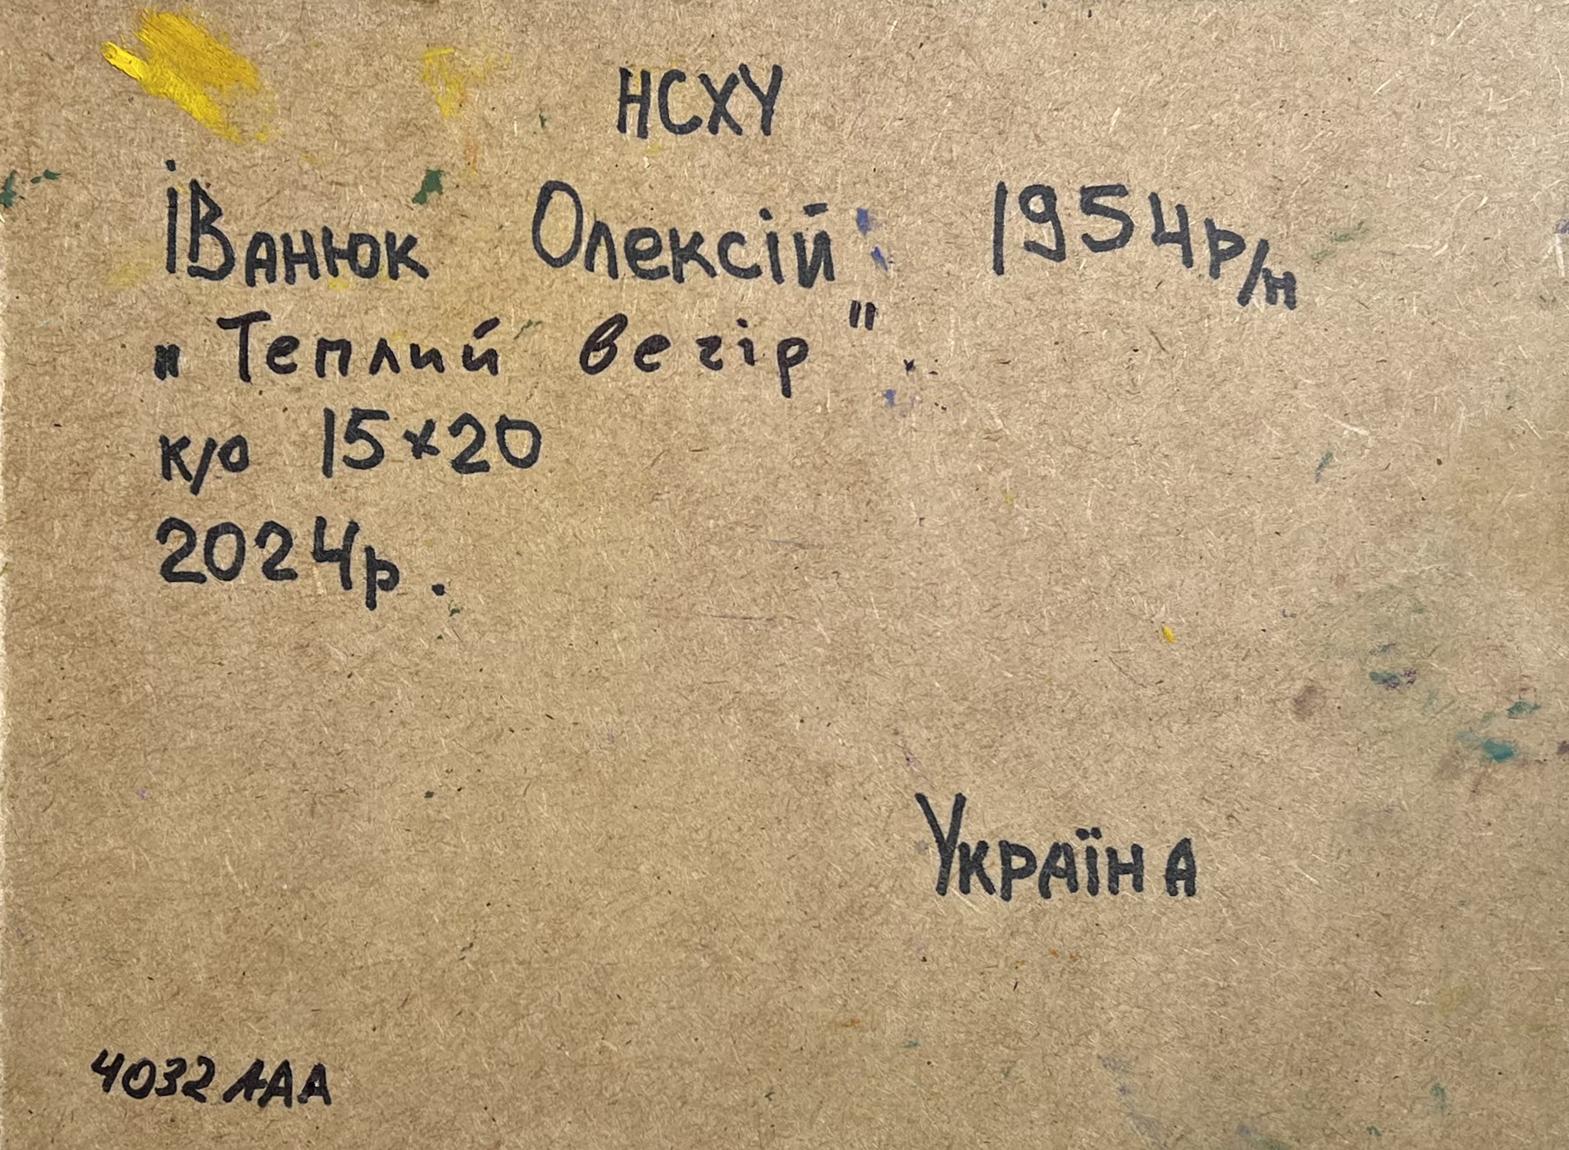 НСХУ
Іванюк Олексій 1954р/н
"Теплий вечір".
к/о 15×20
2024р.
Україна
4032 ААА